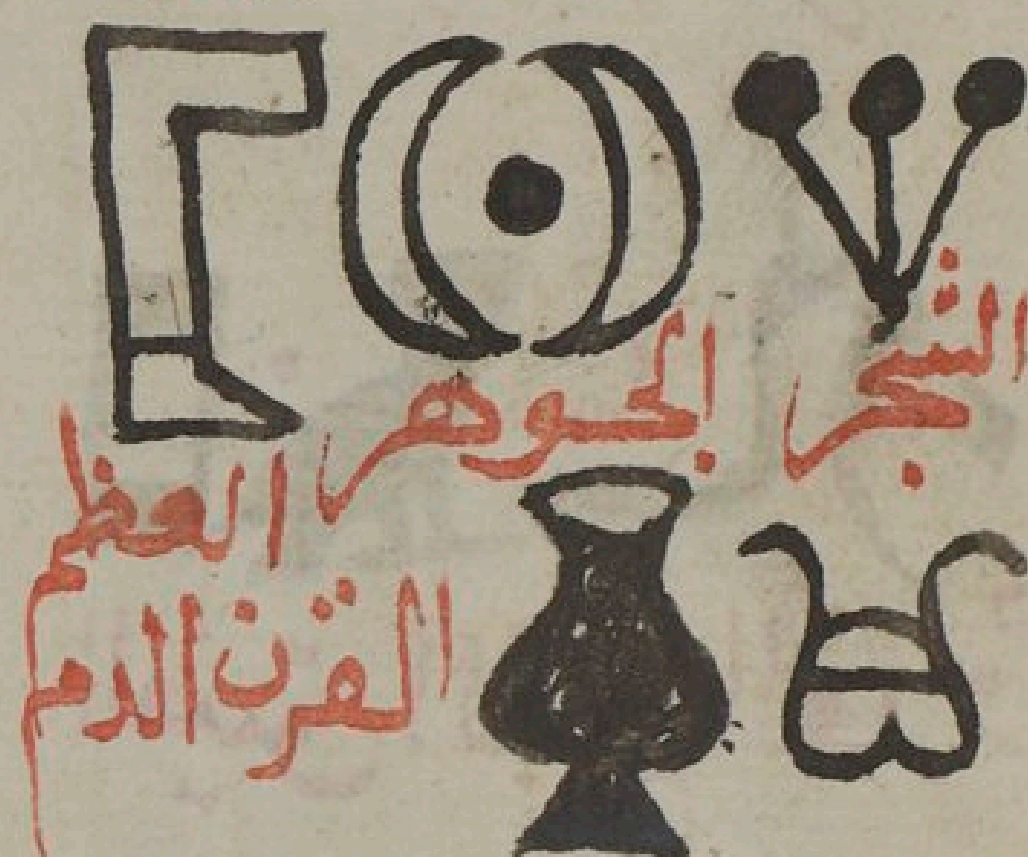 الشجر الجوهر العظم
القرن الدم